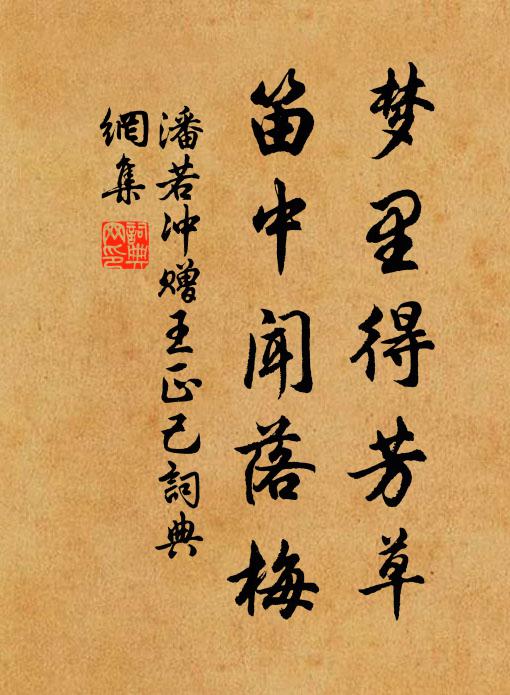 梦里得芳草
笛中闻落梅
潘若冲赠王正己詞典
網集
詞典網印